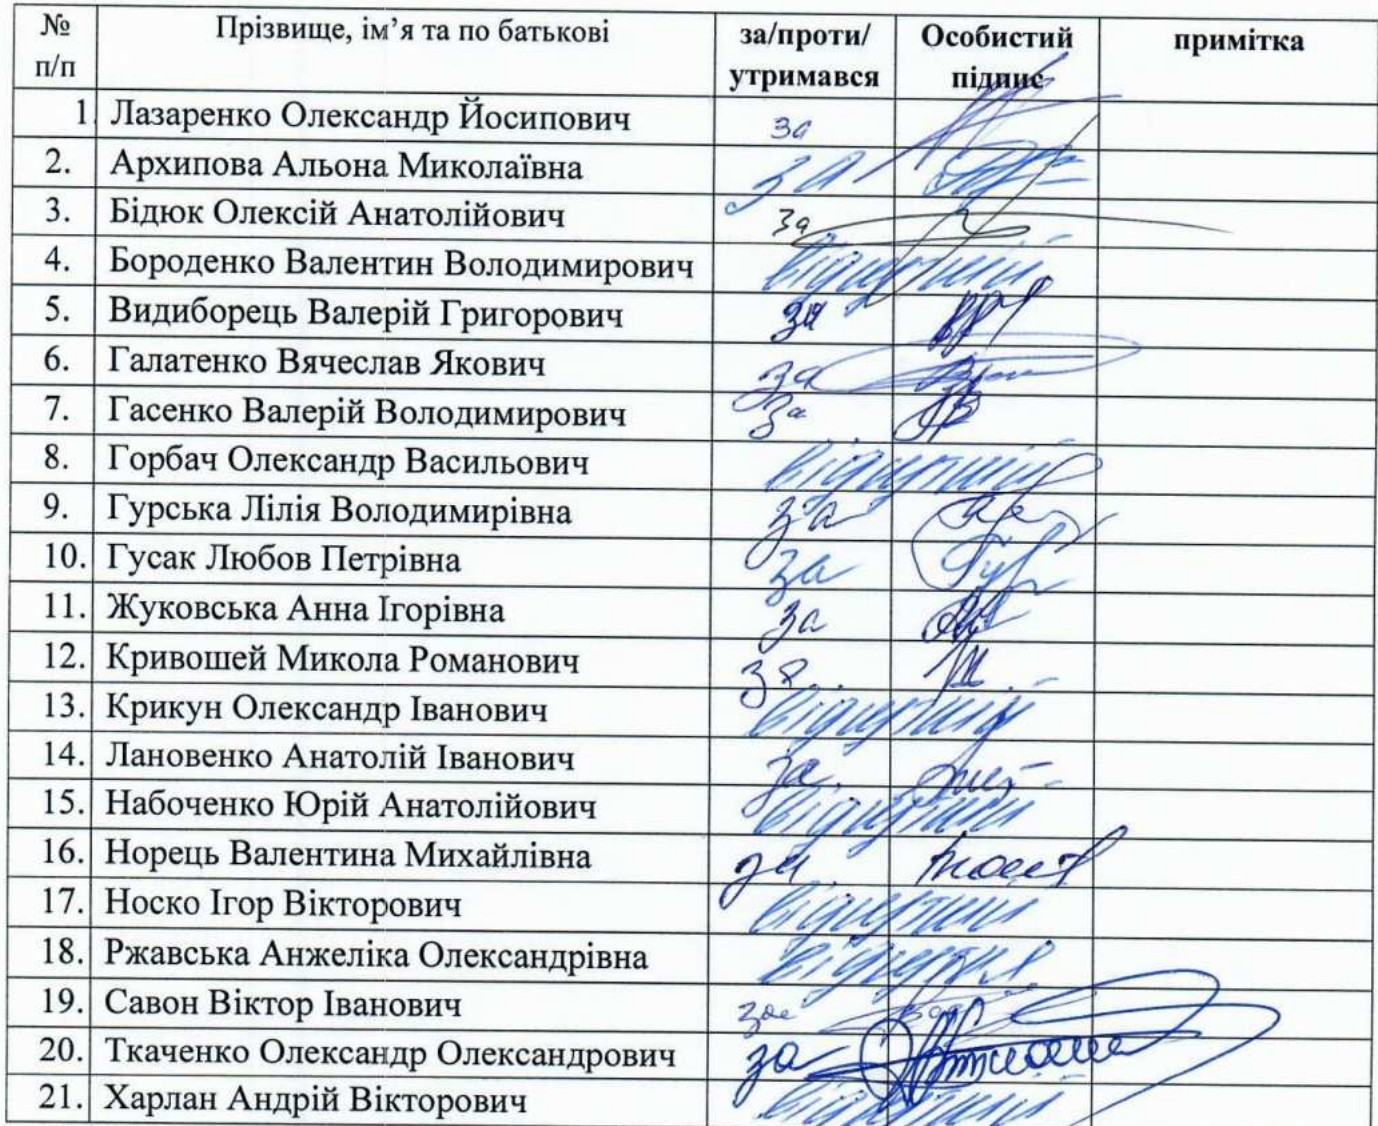 № п/п Прізвище, ім’я та по батькові за/проти/утримався Особистий підпис примітка
1. Лазаренко Олександр Йосипович за
2. Архипова Альона Миколаївна за
3. Бідюк Олексій Анатолійович за
4. Бороденко Валентин Володимирович відсутній
5. Видиборець Валерій Григорович за
6. Галатенко Вячеслав Якович за
7. Гасенко Валерій Володимирович за
8. Горбач Олександр Васильович відсутній
9. Гурська Лілія Володимирівна за
10. Гусак Любов Петрівна за
11. Жуковська Анна Ігорівна за
12. Кривошей Микола Романович за
13. Крикун Олександр Іванович відсутній
14. Лановенко Анатолій Іванович за
15. Набоченко Юрій Анатолійович відсутній
16. Норець Валентина Михайлівна за
17. Носко Ігор Вікторович відсутній
18. Ржавська Анжеліка Олександрівна відсутня
19. Савон Віктор Іванович за
20. Ткаченко Олександр Олександрович за
21. Харлан Андрій Вікторович відсутній